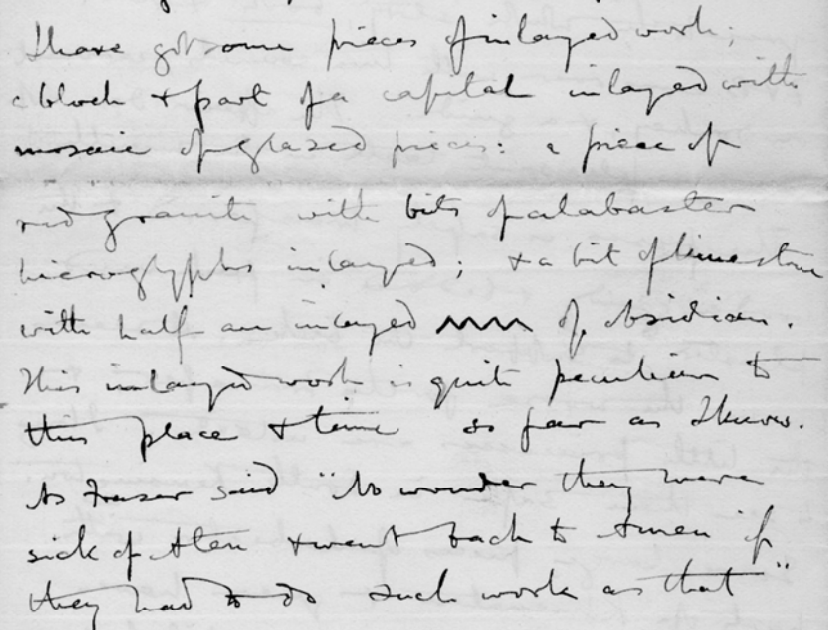 I have got some pieces of inlayed work;
a block & part of a capital inlayed with
mosaic of glazed pieces: a piece of
red granite with bits of alabaster
hieroglyphs inlayed; & a bit of limestone
with half an inlayed of obsidian.
This inlayed work is quite peculiar to
this place & time so far as I know.
As Fraser said "No wonder they were
sick of Aten & went back to Amen if
they had to do such work as that"